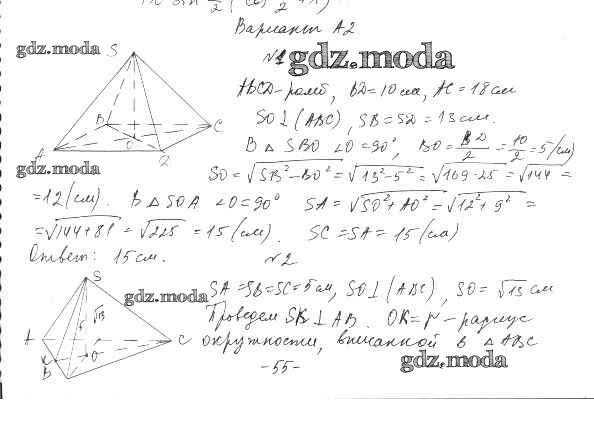 Вариант А2
gdz.moda
№1 gdz.moda
ABCD - ромб, BD = 10 см, AC = 18 см
SO ⊥ (ABC), SB = SD = 13 см.
В △ SBO ∠O = 90°, BO = BD/2 = 10/2 = 5 (см)
gdz.moda
SO = √SB² - BO² = √13² - 5² = √169 - 25 = √144 =
= 12 (см). В △ SOA ∠O = 90° SA = √SO² + AO² = √12² + 9² =
= √144 + 81 = √225 = 15 (см). SC = SA = 15 (см)
Ответ: 15 см. №2
S
B
C
O
A
D
gdz.moda
SA = SB = SC = 5 см, SO ⊥ (ABC), SO = √13 см
Проведем SK ⊥ AB. OK = r - радиус
окружности, вписанной в △ ABC
S
√13
A
O
C
K
B
-55-
gdz.moda